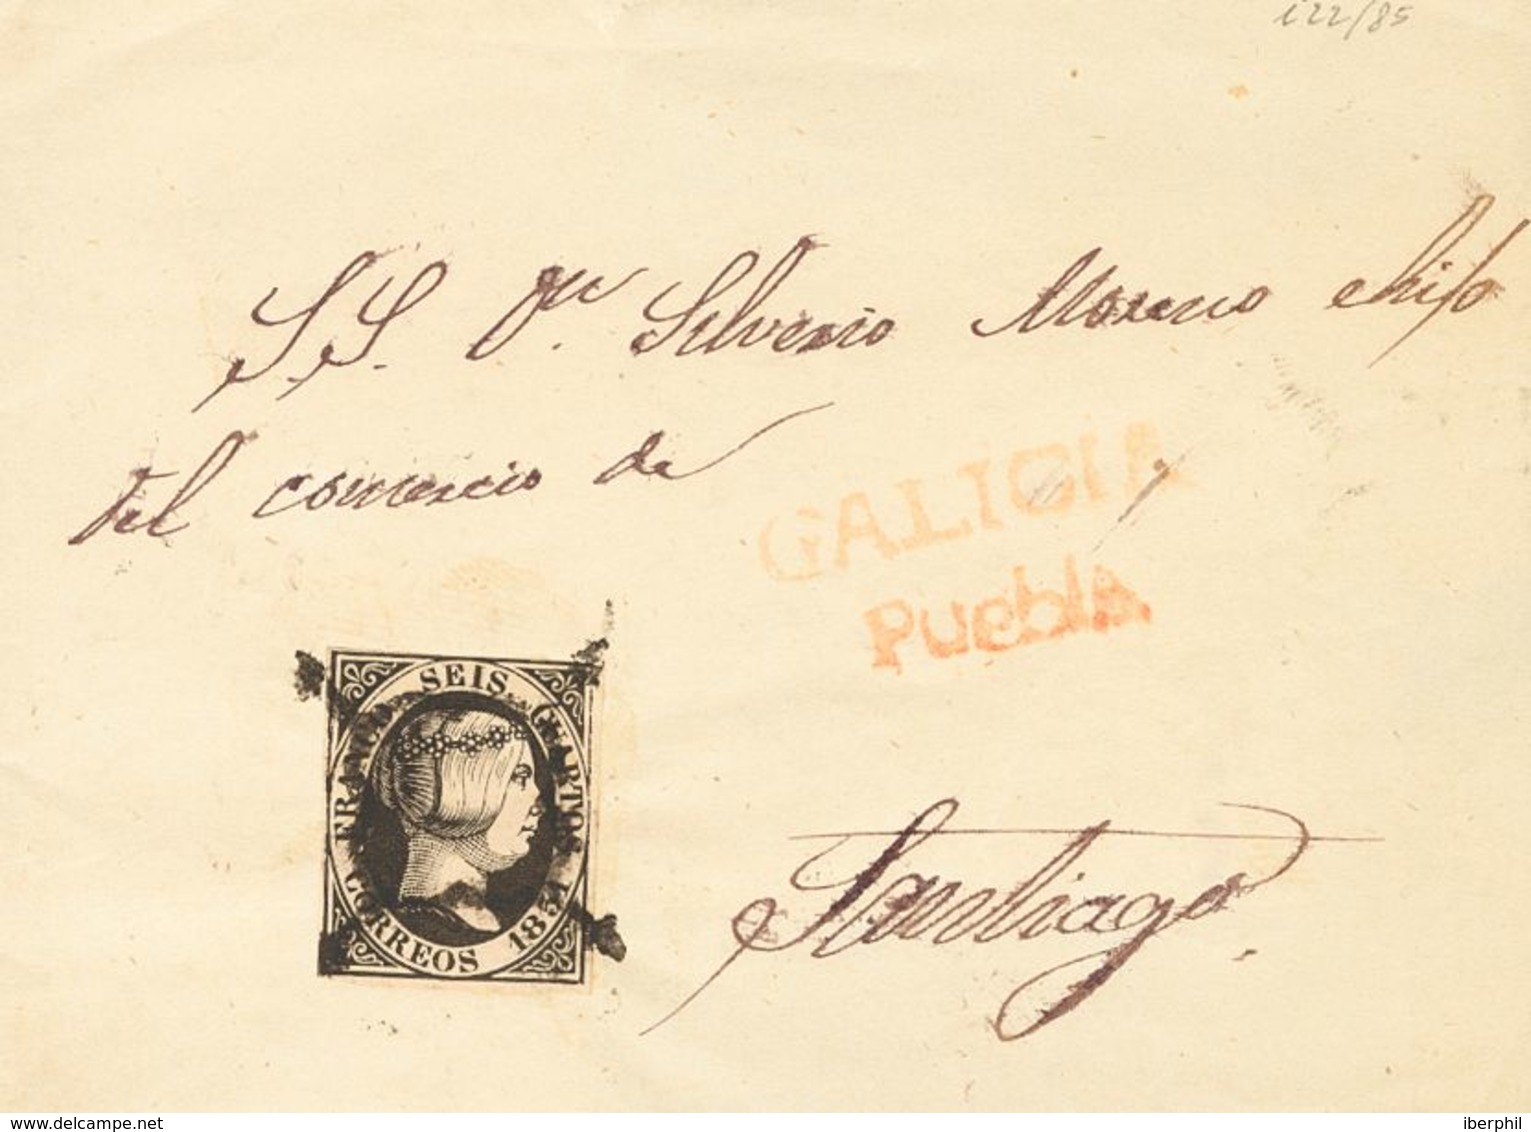 122/85
S.S. Dn. Silverio Moreno e hijo
del comercio de
GALICIA
Puebla.
SEIS CUARTOS
FRANCO
CORREOS 1851
Santiago.
www.delcampe.net
iberphil